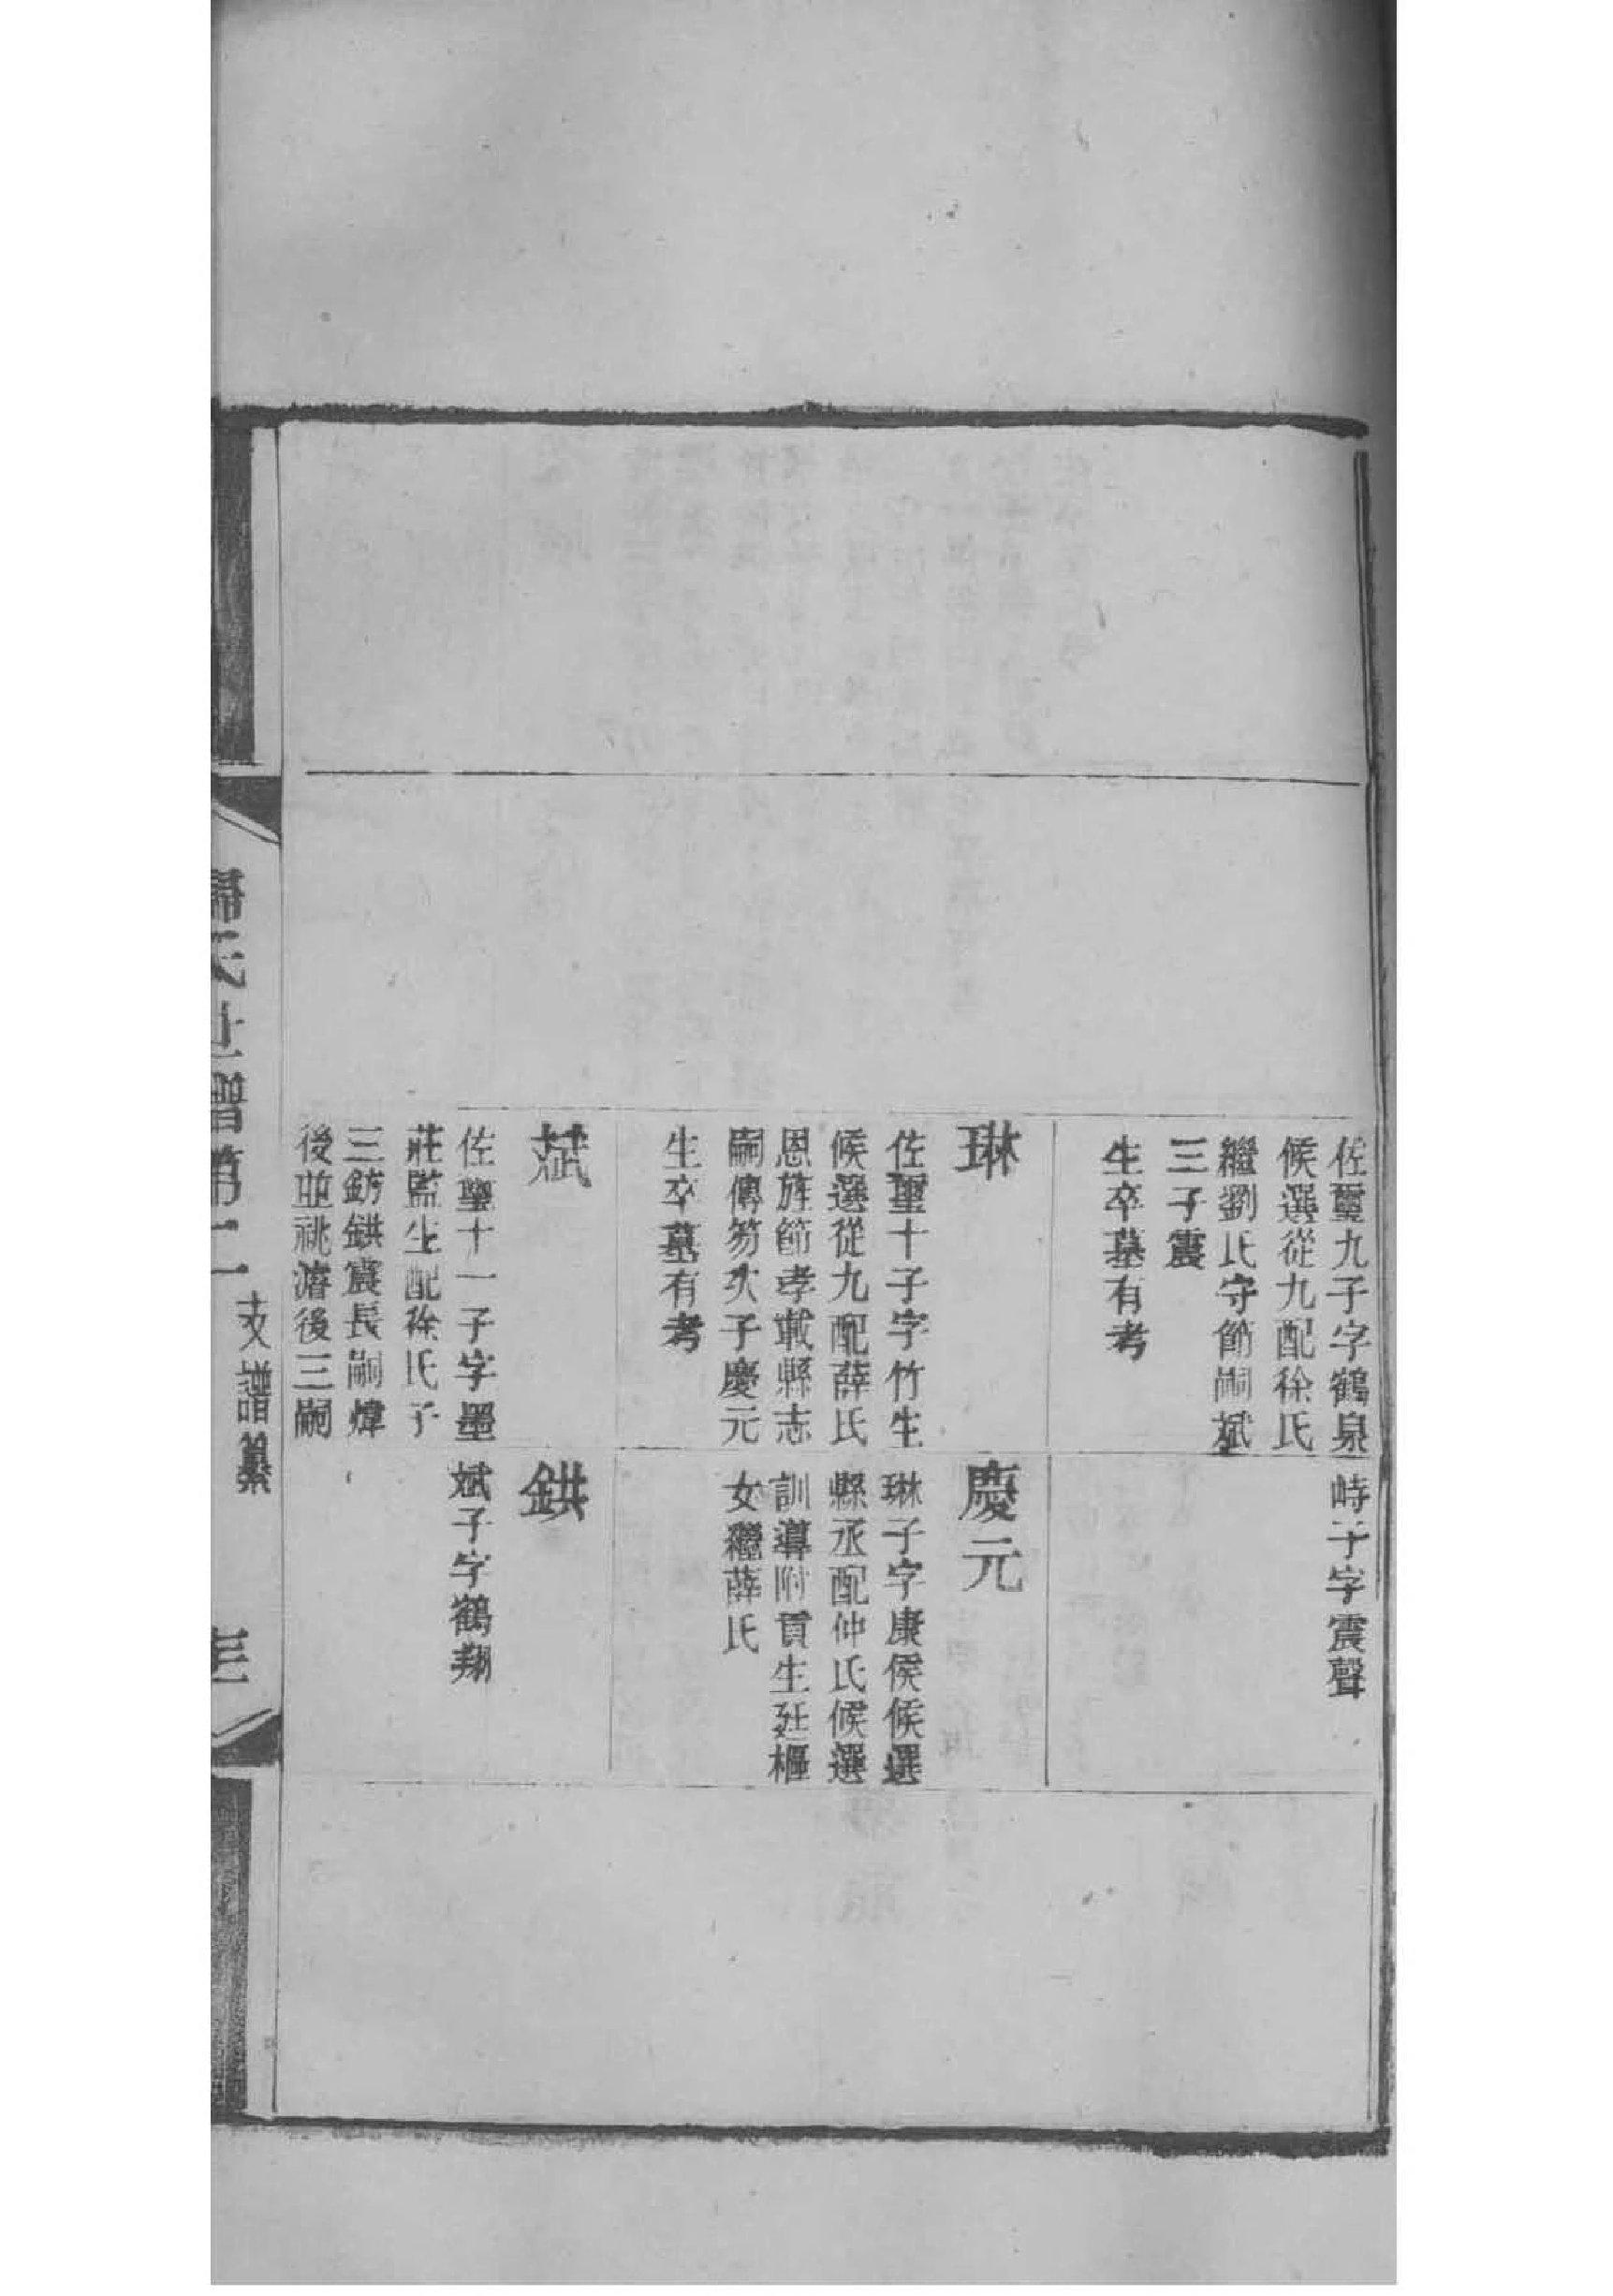 佐璽九子字鶴泉
候選從九配徐氏
繼劉氏守節嗣斌
三子震
生卒墓有考
峙子字震聲
琳
佐璽十子字竹生
候選從九配薛氏
恩旌節孝載縣志
嗣傳笏次子慶元
生卒墓有考
慶元
琳子字康侯候選
縣丞配仲氏候選
訓導附貢生廷樞
女繼薛氏
斌
佐璽十一子字墨
莊監生配徐氏子
三鈁鉷震長嗣煒
後並祧濬後三嗣
鉷
斌子字鶴翔
氏世譜第二 支譜纂